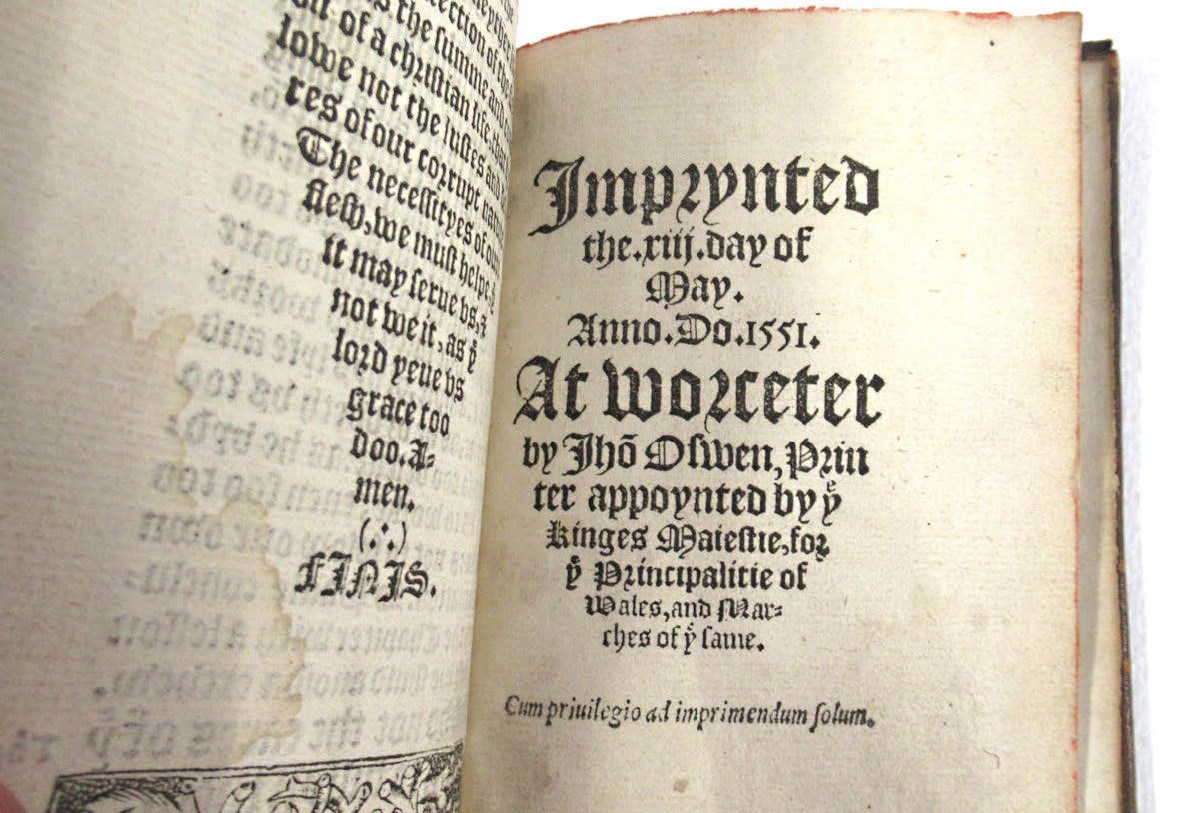 the summe and
of a christian life, that
lowe not the lustes and
res of our corrupt natu
The necessityes of our
flesh, we must helpe,
it may serue vs, &
not we it, as yͤ
lord yeue vs
grace too
doo. A⸗
men.
(∴)
FINIS.
Imprynted
the.xiij.day of
May.
Anno.Do.1551.
At worceter
by Jhō Oswen, Prin
ter appoynted by yͤ
kinges Maiestie, for
yͤ Principalitie of
Wales, and Mar⸗
ches of yͤ same.
Cum priuilegio ad imprimendum solum.